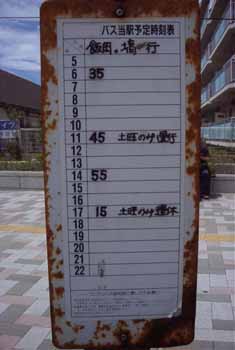 バス当駅予定時刻表
飯岡。塙行
5
6 35
7
8
9
10
11 45 土旺のみ運行
12
13
14 55
15
16
17 15 土旺のみ運休
18
19
20
21
22